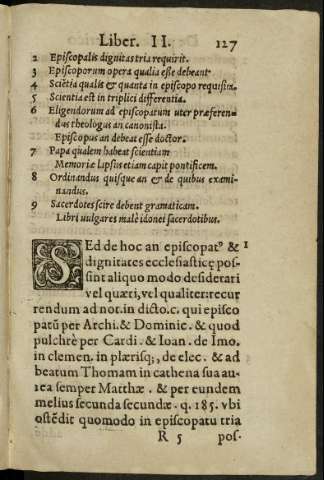 Liber. II. 127
2 Episcopalis dignitas tria requirit.
3 Episcoporum opera qualia esse debeant
4 Sciētia qualis & quanta in episcopo requisita.
5 Scientia est in triplici differentia.
6 Eligendorum ad episcopatum uter præferen-
dus theologus an canonista.
Episcopus an debeat esse doctor.
7 Papa qualem habeat scientiam
Memoriæ lapsus etiam capit pontificem.
8 Ordinandus quisque an & de quibus exami-
nandus.
9 Sacerdotes scire debent gramaticam.
Libri uulgares malè idonei sacerdotibus.
SEd de hoc an episcopatꝰ & 1
dignitates ecclesiasticę pos-
sint aliquo modo desiderari
vel quæri, vel qualiter: recur
rendum ad not. in dicto. c. qui episco
patū per Archi. & Dominic. & quod
pulchrè per Cardi. & Ioan. de Imo.
in clemen. in plærisq;, de elec. & ad
beatum Thomam in cathena sua au-
rea semper Matthæ. & per eundem
melius secunda secundæ. q. 185. vbi
ostēdit quomodo in episcopatu tria
R 5 pos-